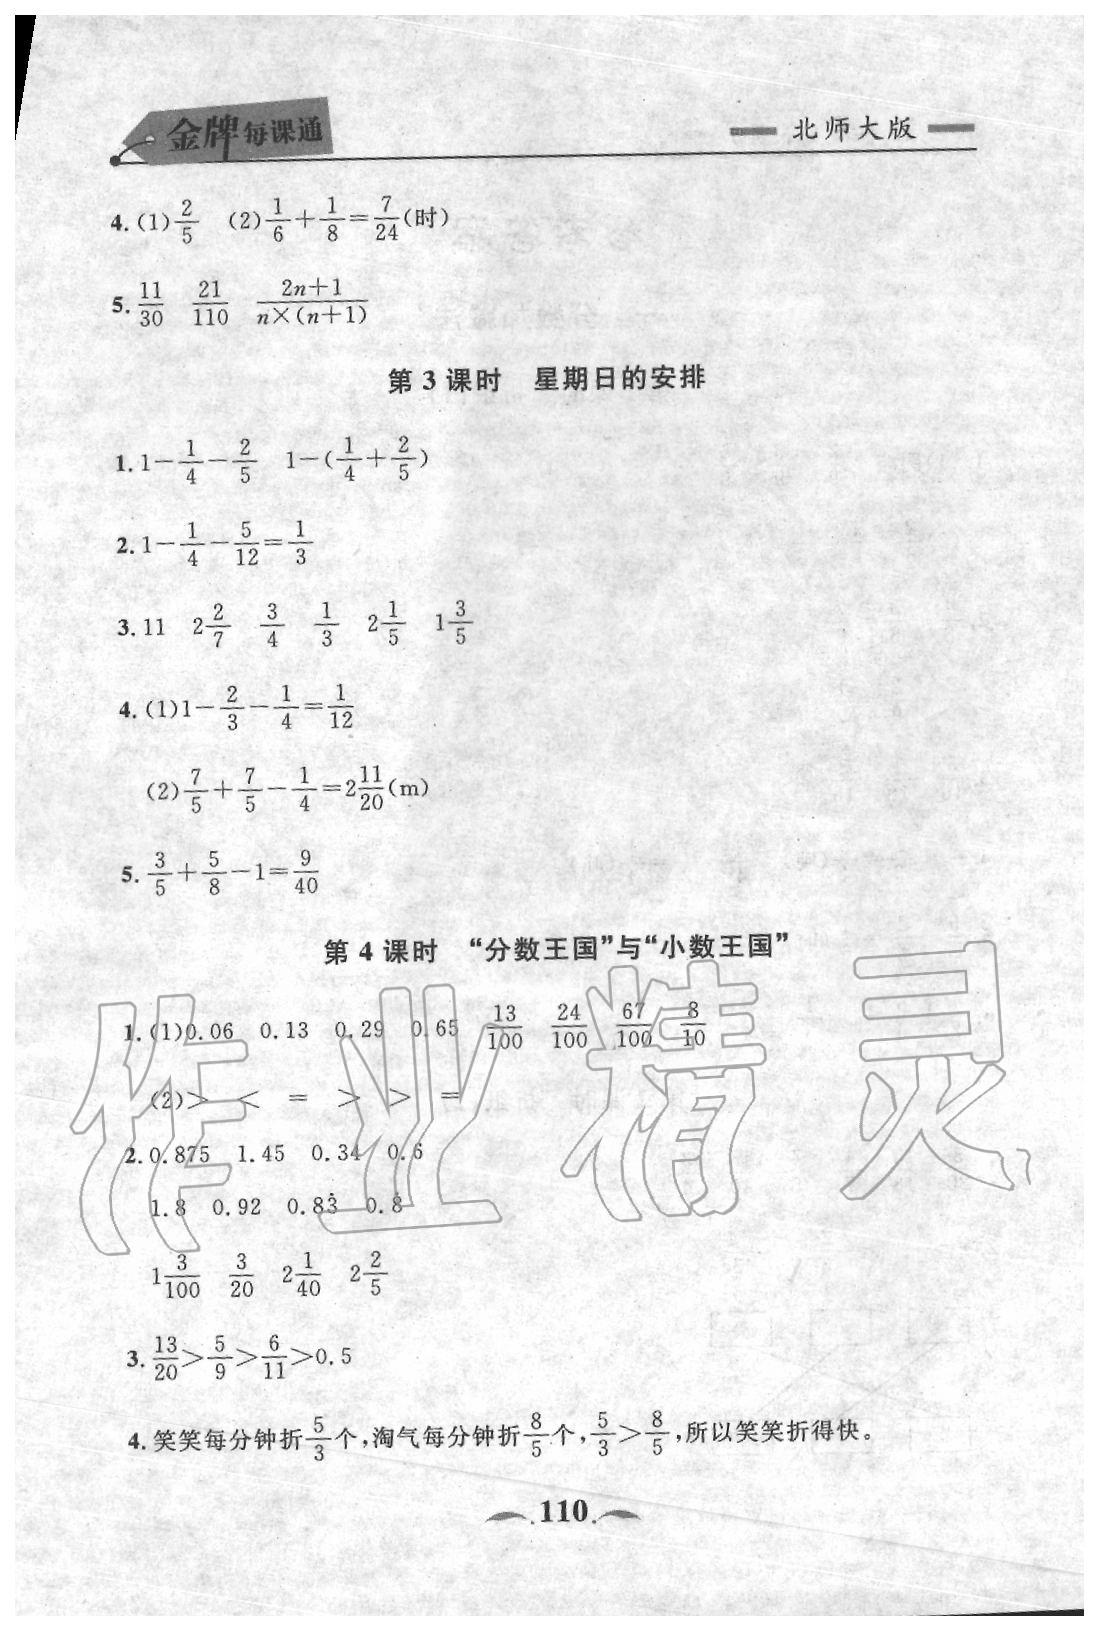 金牌每课通
北师大版
4.(1)2/5 (2)1/6+1/8=7/24(时)
5. 11/30 21/110 2n+1/n×(n+1)
第3课时 星期日的安排
1. 1-1/4-2/5 1-(1/4+2/5)
2. 1-1/4-5/12=1/3
3. 11 2 2/7 3/4 1/3 2 1/5 1 3/5
4.(1)1-2/3-1/4=1/12
(2)7/5+7/5-1/4=2 11/20(m)
5. 3/5+5/8-1=9/40
第4课时 “分数王国”与“小数王国”
1.(1)0.06 0.13 0.29 0.65 13/100 24/100 67/100 8/10
(2)> < = > > =
2. 0.875 1.45 0.34 0.6
1.8 0.92 0.83̇ 0.8̇
1 3/100 3/20 2 1/40 2 2/5
3. 13/20>5/9>6/11>0.5
4. 笑笑每分钟折5/3个,淘气每分钟折8/5个,5/3>8/5,所以笑笑折得快。
110
作业精灵